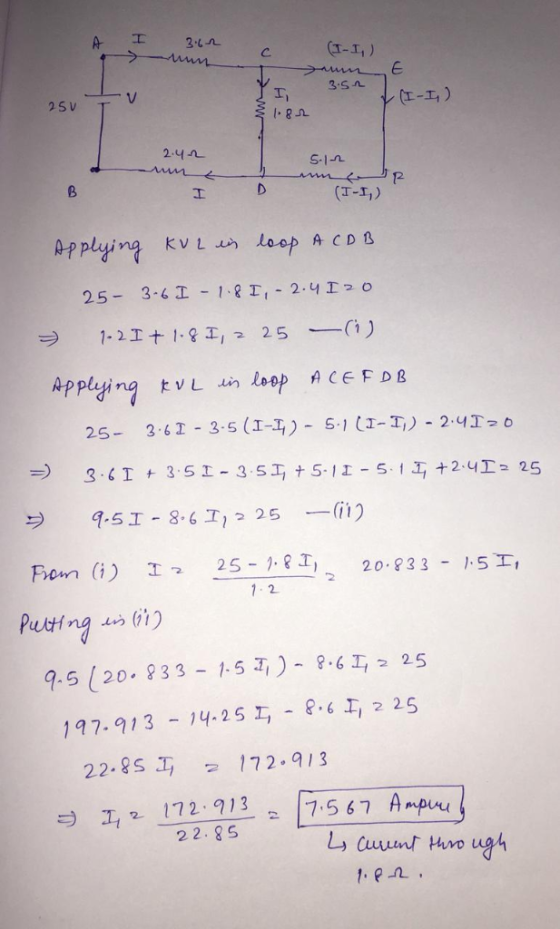 A I 3.6Ω C (I-I₁) E
3.5Ω
25V V I₁ (I-I₁)
1.8Ω
2.4Ω 5.1Ω
B I D (I-I₁) F
Applying KVL in loop ACDB
25- 3.6I - 1.8I₁ - 2.4I = 0
⇒ 1.2I + 1.8I₁ = 25 —(i)
Applying KVL in loop ACEFDB
25- 3.6I - 3.5(I-I₁) - 5.1(I-I₁) - 2.4I = 0
⇒ 3.6I + 3.5I - 3.5I₁ + 5.1I - 5.1I₁ + 2.4I = 25
⇒ 9.5I - 8.6I₁ = 25 —(ii)
From (i) I = 25 - 1.8I₁ / 1.2 = 20.833 - 1.5I₁
Putting in (ii)
9.5(20.833 - 1.5I₁) - 8.6I₁ = 25
197.913 - 14.25I₁ - 8.6I₁ = 25
22.85I₁ = 172.913
⇒ I₁ = 172.913 / 22.85 = 7.567 Ampere
↳ Current through
1.8Ω.